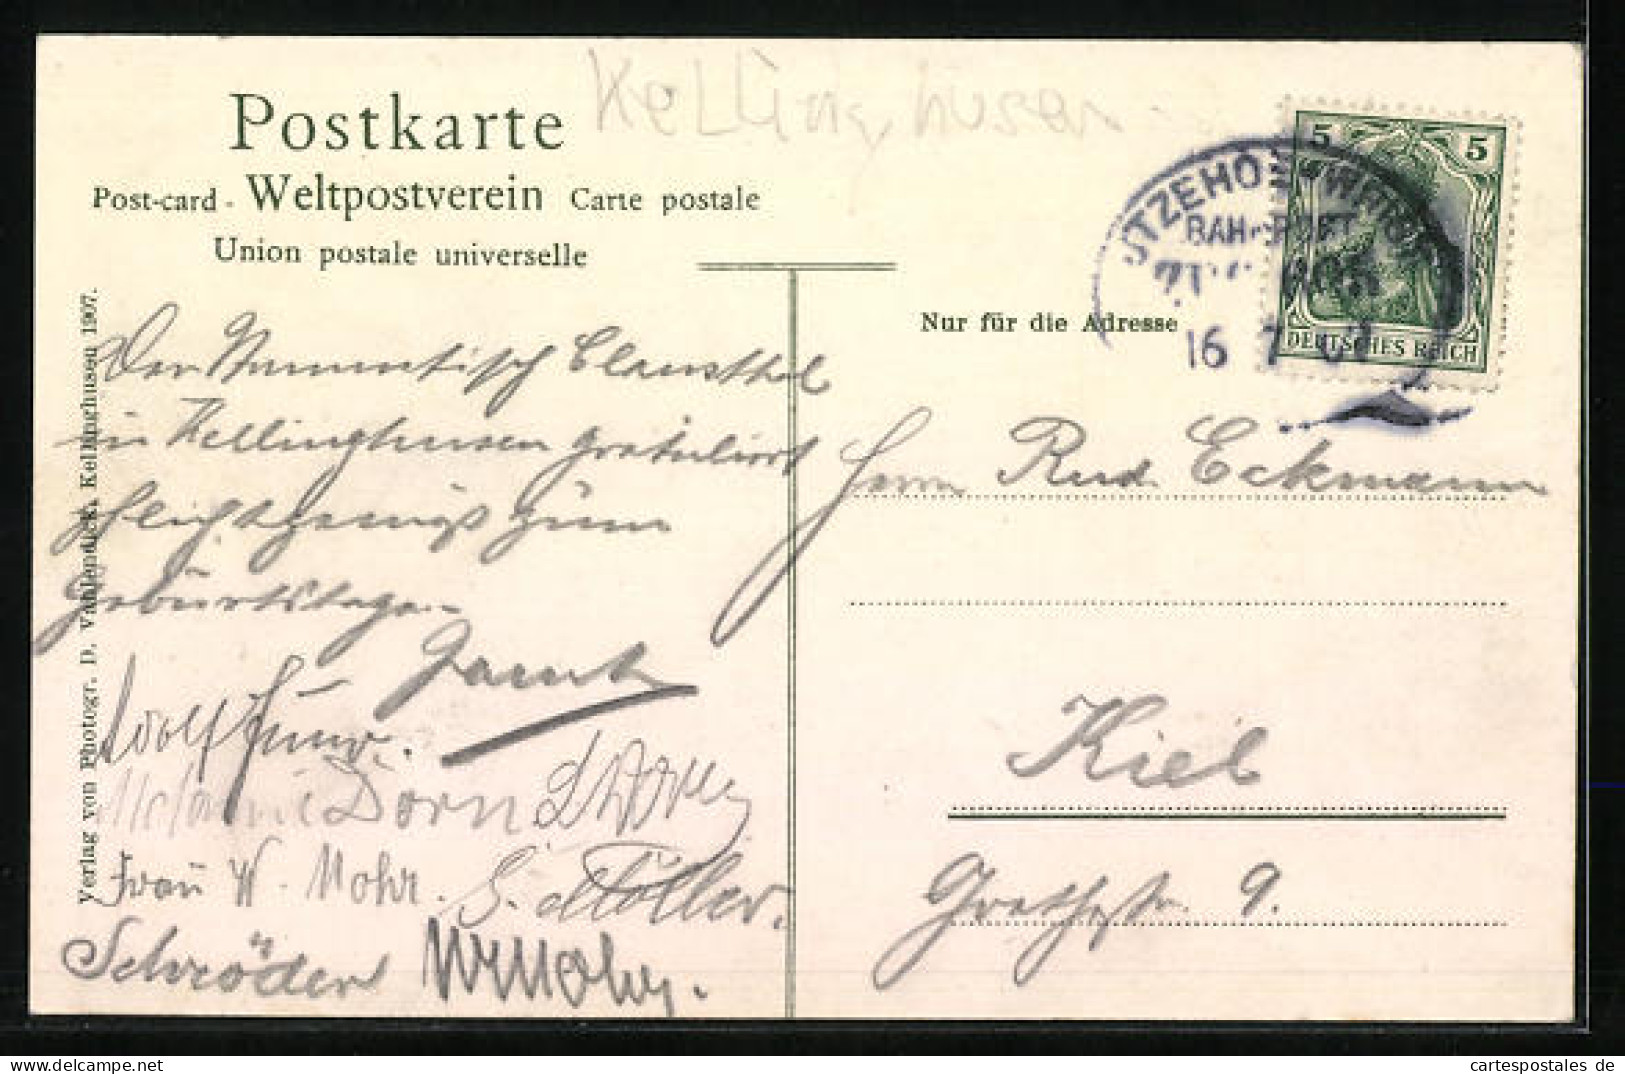 Kellinghusen
Postkarte
Post-card - Weltpostverein Carte postale
Union postale universelle
Nur für die Adresse
ITZEHOE-WRIST
BAHNPOST
16 7 07
5 5
DEUTSCHES REICH
Verlag von Photogr. D. Vahlendick, Kellinghusen 1907.
Der Stammtisch Clausthal
in Kellinghusen gratuliert
zum
Geburtstage.
Adolf
Melanie Dorn
Frau W. Mohr. G. Möller.
Schröder W Mohr.
Herrn Rud. Eckmann
Kiel
Goethestr. 9.
cartespostales de
PicClick